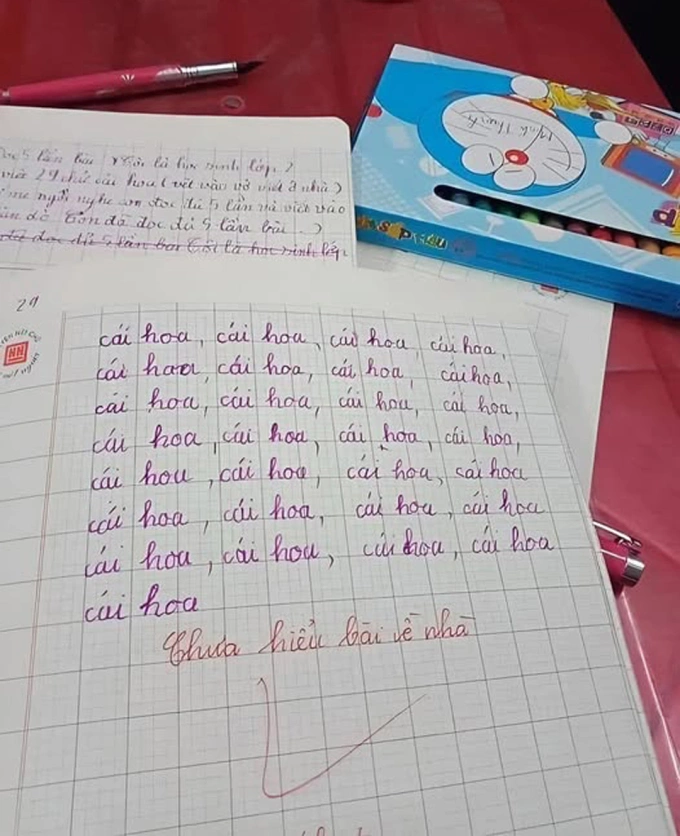 5 lần bài Tôi là học sinh lớp 2
viết 29 chữ cái hoa (viết vào vở viết ở nhà)
mẹ ngồi nghe con đọc đủ 5 lần và viết vào
dò Con đã đọc đủ 5 lần bài )
đã đọc đủ 5 lần bài Tôi là học sinh lớp
29
cái hoa, cái hoa, cái hoa, cái hoa,
cái hoa, cái hoa, cái hoa, cái hoa,
cái hoa, cái hoa, cái hoa, cái hoa,
cái hoa, cái hoa, cái hoa, cái hoa,
cái hoa, cái hoa, cái hoa, cái hoa
cái hoa, cái hoa, cái hoa, cái hoa
cái hoa, cái hoa, cái hoa, cái hoa
cái hoa
Chưa hiểu bài về nhà